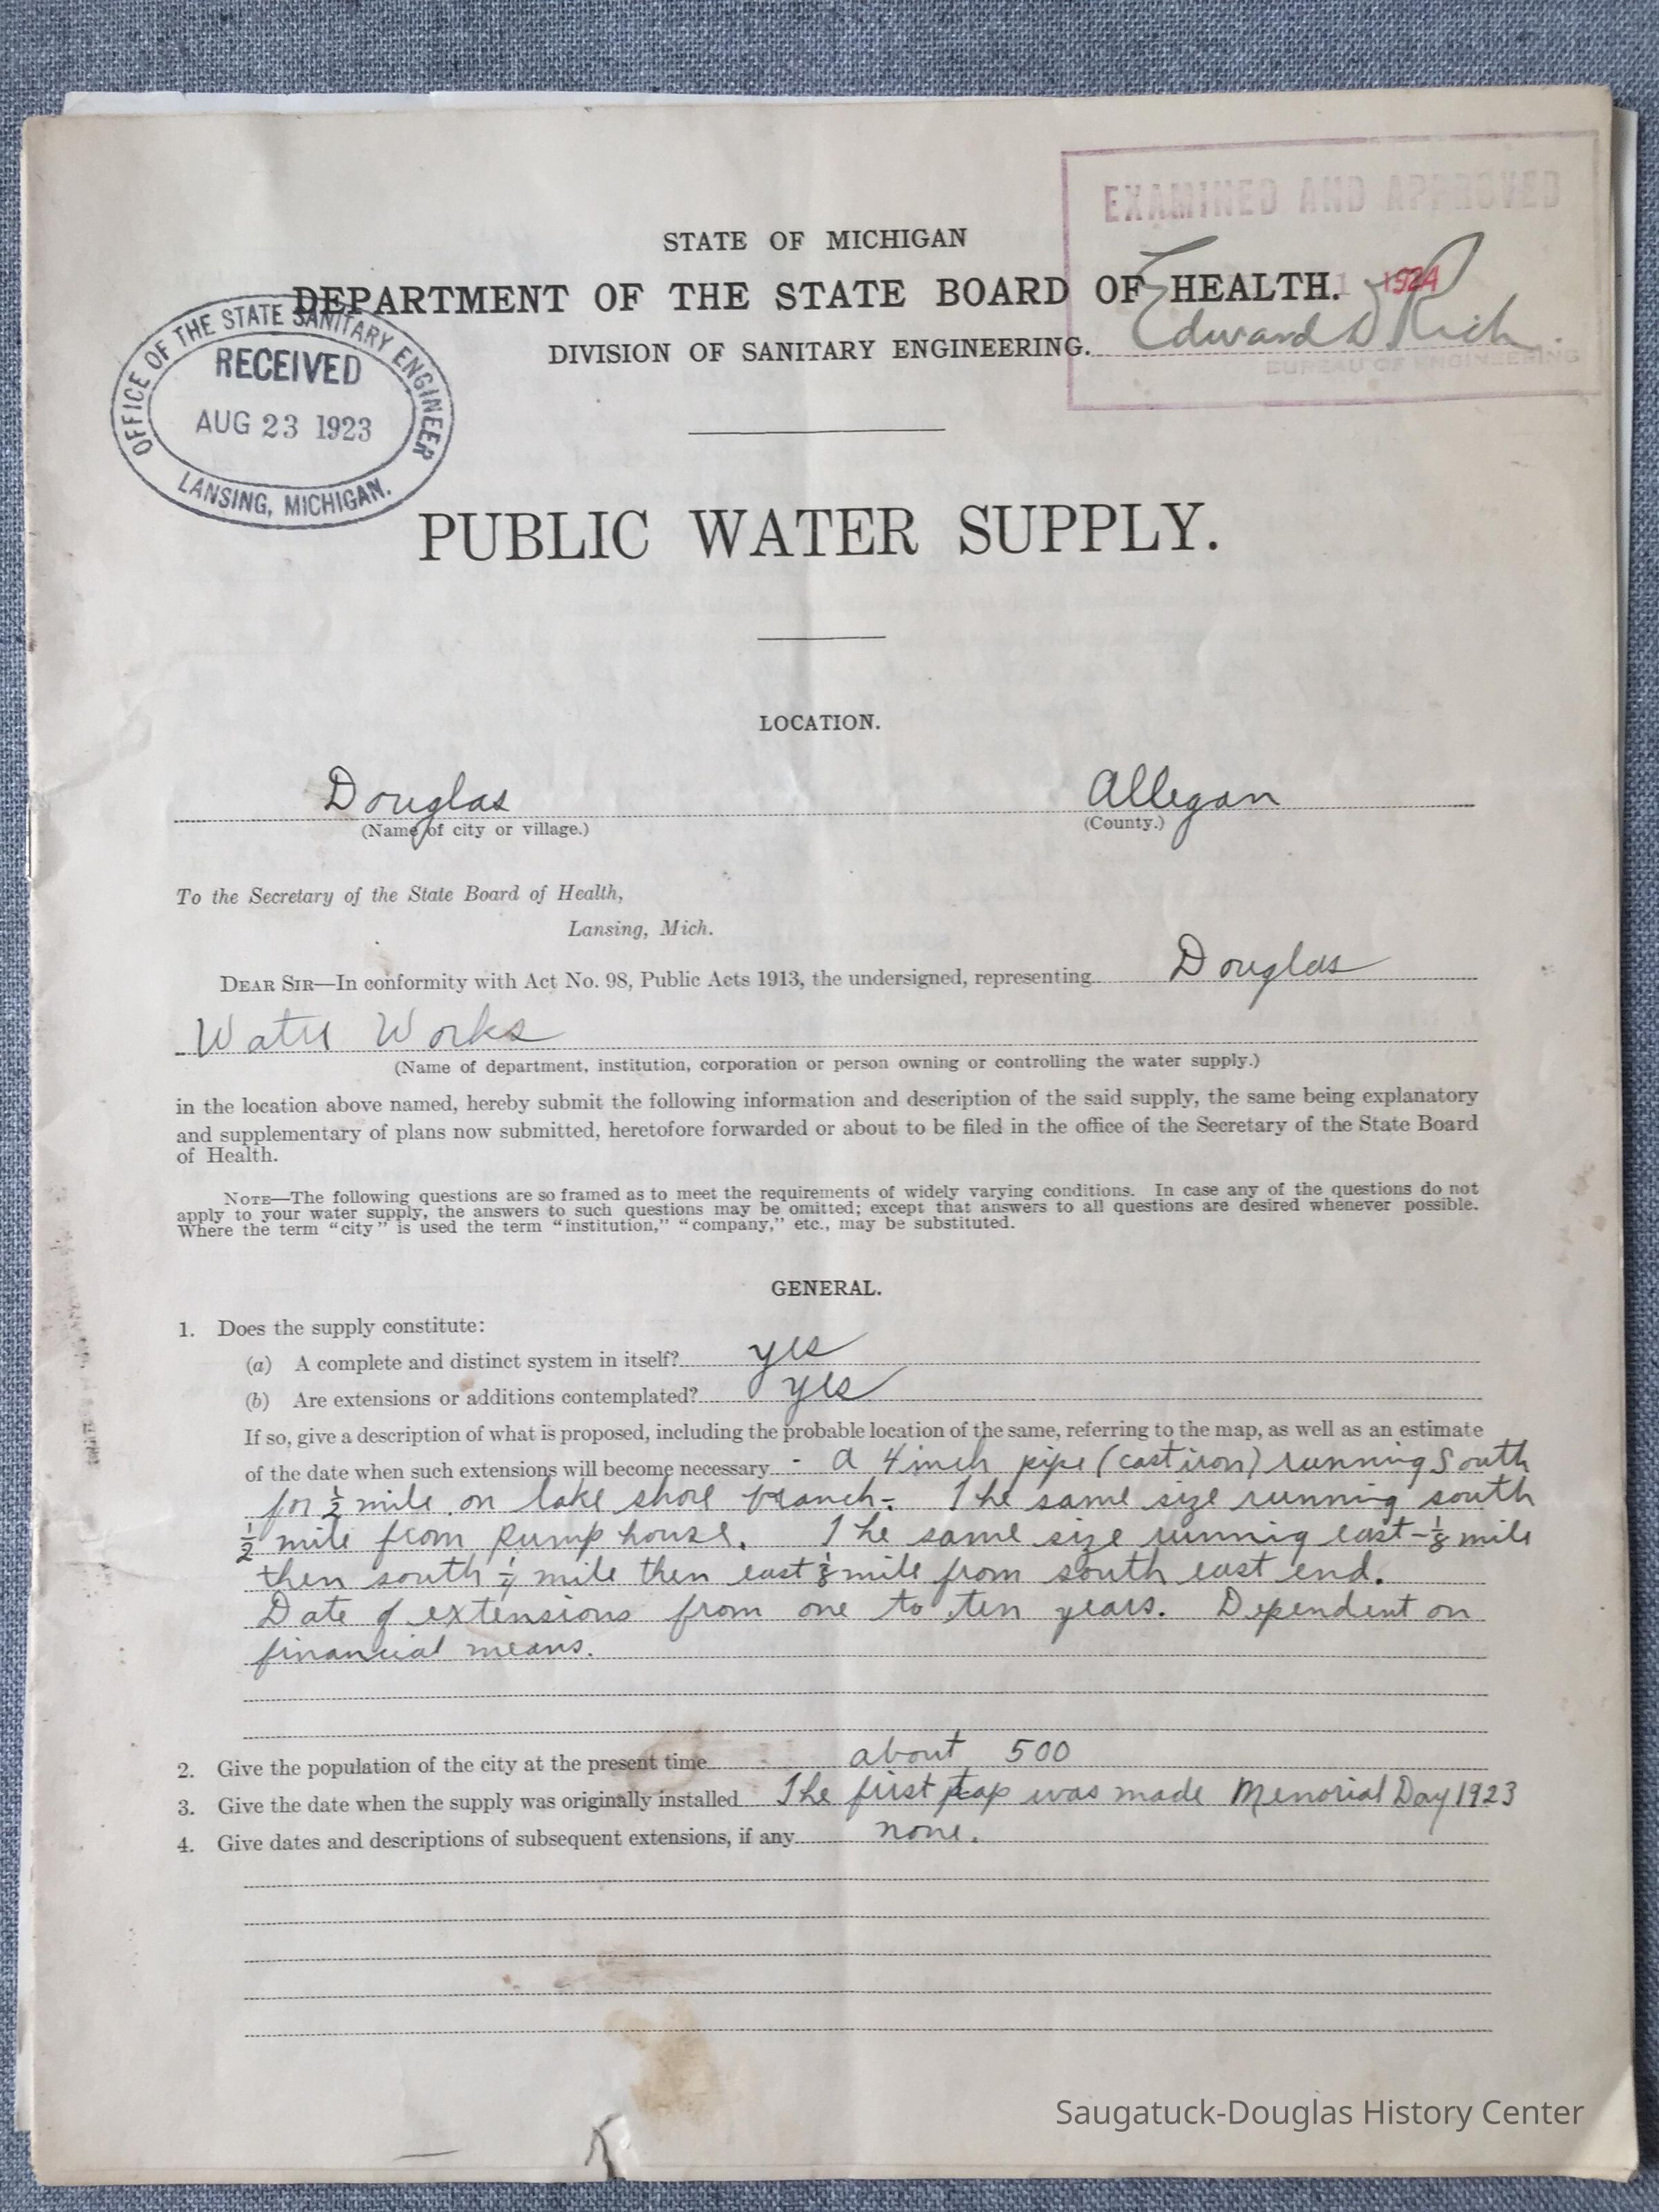 EXAMINED AND APPROVED
STATE OF MICHIGAN
DEPARTMENT OF THE STATE BOARD OF HEALTH.
1924
Edward D Rich.
DIVISION OF SANITARY ENGINEERING.
BUREAU OF ENGINEERING
OFFICE OF THE STATE SANITARY ENGINEER
RECEIVED
AUG 23 1923
LANSING, MICHIGAN.
PUBLIC WATER SUPPLY.
LOCATION.
Douglas Allegan
(Name of city or village.) (County.)
To the Secretary of the State Board of Health,
Lansing, Mich.
DEAR SIR—In conformity with Act No. 98, Public Acts 1913, the undersigned, representing Douglas
Water Works
(Name of department, institution, corporation or person owning or controlling the water supply.)
in the location above named, hereby submit the following information and description of the said supply, the same being explanatory
and supplementary of plans now submitted, heretofore forwarded or about to be filed in the office of the Secretary of the State Board
of Health.
NOTE—The following questions are so framed as to meet the requirements of widely varying conditions. In case any of the questions do not
apply to your water supply, the answers to such questions may be omitted; except that answers to all questions are desired whenever possible.
Where the term "city" is used the term "institution," "company," etc., may be substituted.
GENERAL.
1. Does the supply constitute:
(a) A complete and distinct system in itself? yes
(b) Are extensions or additions contemplated? yes
If so, give a description of what is proposed, including the probable location of the same, referring to the map, as well as an estimate
of the date when such extensions will become necessary - A 4 inch pipe (cast iron) running South
for ½ mile on lake shore branch - The same size running south
½ mile from pump house. The same size running east - ⅛ mile
then south - ¼ mile then east ⅛ mile from south east end.
Date of extensions from one to ten years. Dependent on
financial means.
2. Give the population of the city at the present time about 500
3. Give the date when the supply was originally installed The first tap was made Memorial Day 1923
4. Give dates and descriptions of subsequent extensions, if any none.
Saugatuck-Douglas History Center